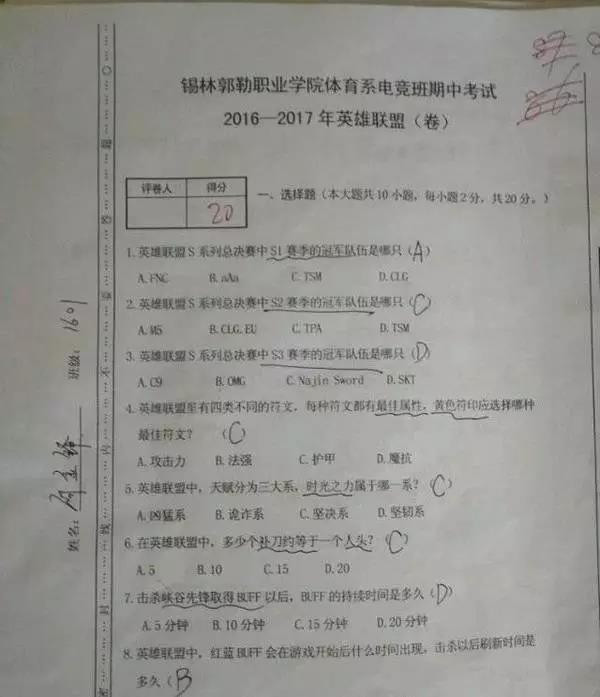 锡林郭勒职业学院体育系电竞班期中考试
2016—2017 年英雄联盟（卷）
评卷人 得分
20
一、选择题（本大题共 10 小题，每小题 2 分，共 20 分。）
1. 英雄联盟 S 系列总决赛中 S1 赛季的冠军队伍是哪只（A）
A. FNC B. aAa C. TSM D. CLG
2. 英雄联盟 S 系列总决赛中 S2 赛季的冠军队伍是哪只（C）
A. M5 B. CLG. EU C. TPA D. TSM
3. 英雄联盟 S 系列总决赛中 S3 赛季的冠军队伍是哪只（D）
A. C9 B. OMG C. Najin Sword D. SKT
4. 英雄联盟里有四类不同的符文，每种符文都有最佳属性，黄色符印应选择哪种
最佳符文？ （C）
A. 攻击力 B. 法强 C. 护甲 D. 魔抗
5. 英雄联盟中，天赋分为三大系，时光之力属于哪一系？（C）
A. 凶猛系 B. 诡诈系 C. 坚决系 D. 坚韧系
6. 在英雄联盟中，多少个补刀约等于一个人头？（C）
A. 5 B. 10 C. 15 D. 20
7. 击杀峡谷先锋取得 BUFF 以后，BUFF 的持续时间是多久（D）
A. 5 分钟 B. 10 分钟 C. 15 分钟 D. 20 分钟
8. 英雄联盟中，红蓝 BUFF 会在游戏开始后什么时间出现，击杀以后刷新时间是
多久（B
姓名：
班级：1601
封 线 内 不 要 答 题